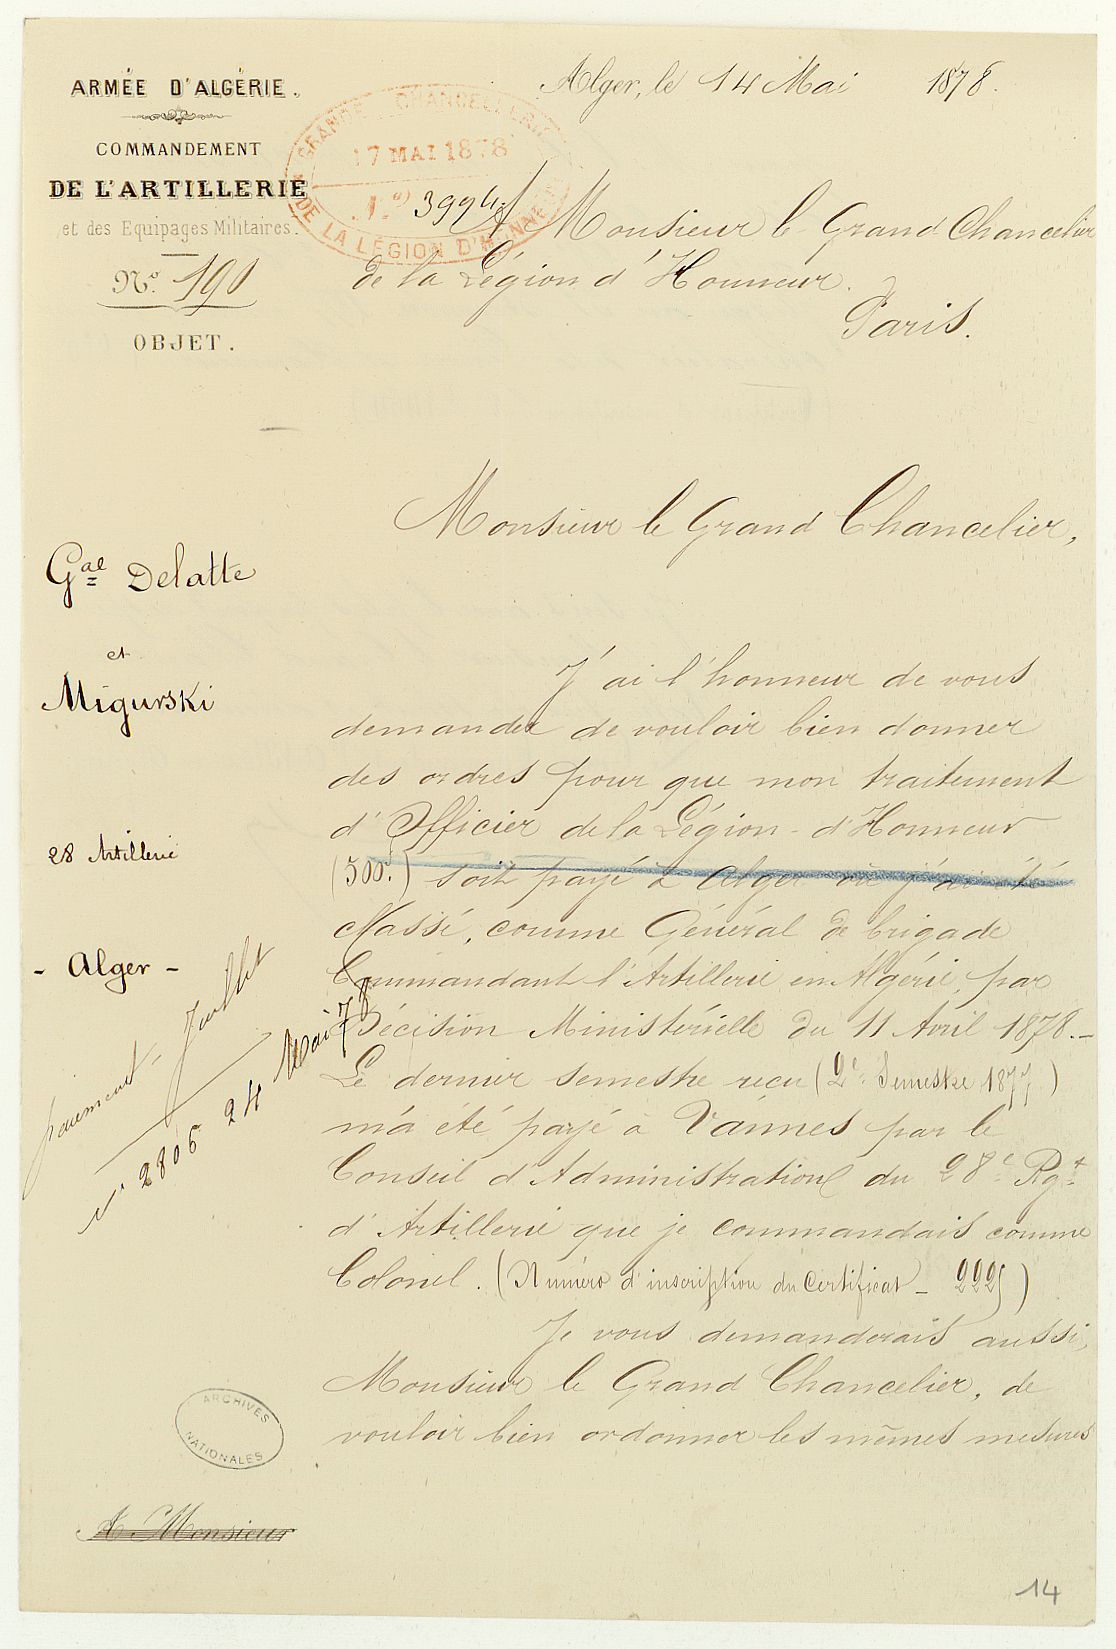 ARMÉE D'ALGÉRIE.
COMMANDEMENT
DE L'ARTILLERIE
et des Equipages Militaires.
No. 190
OBJET.
Alger, le 14 Mai 1878.
GRANDE CHANCELLERIE
17 MAI 1878
No 3994
DE LA LÉGION D'HONNEUR
Monsieur le Grand Chancelier
de la Légion d'Honneur.
Paris.
Monsieur le Grand Chancelier,
Gal Delatte
et
Migurski
28 Artillerie
- Alger -
paiement, Juillet
n° 2806 24 Mai 78
J'ai l'honneur de vous
demander de vouloir bien donner
des ordres pour que mon traitement
d'Officier de la Légion-d'Honneur
(500f.) soit payé à Alger où j'ai été
classé, comme Général de brigade
Commandant l'Artillerie en Algérie, par
Décision Ministérielle du 11 Avril 1878.-
Le dernier semestre reçu (2e. Semestre 1877)
m'a été payé à Vannes par le
Conseil d'Administration du 28e Rgt
d'Artillerie que je commandais comme
Colonel. (Numéro d'inscription du Certificat - 2225)
Je vous demanderais aussi,
Monsieur le Grand Chancelier, de
vouloir bien ordonner les mêmes mesures
ARCHIVES
NATIONALES
A Monsieur
14